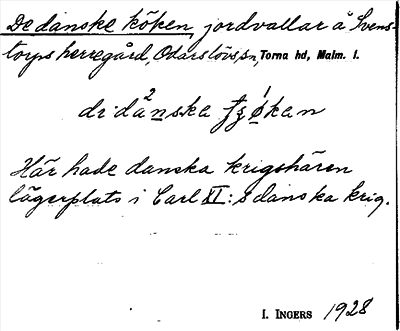 De danske köken, jordvallar å Svens-
torps herregård, Odarslövs sn, Torna hd, Malm. l.
di da²nska tʃø¹kan
Här hade danska krigshären
lägerplats i Carl XI:s danska krig.
I. INGERS 1928